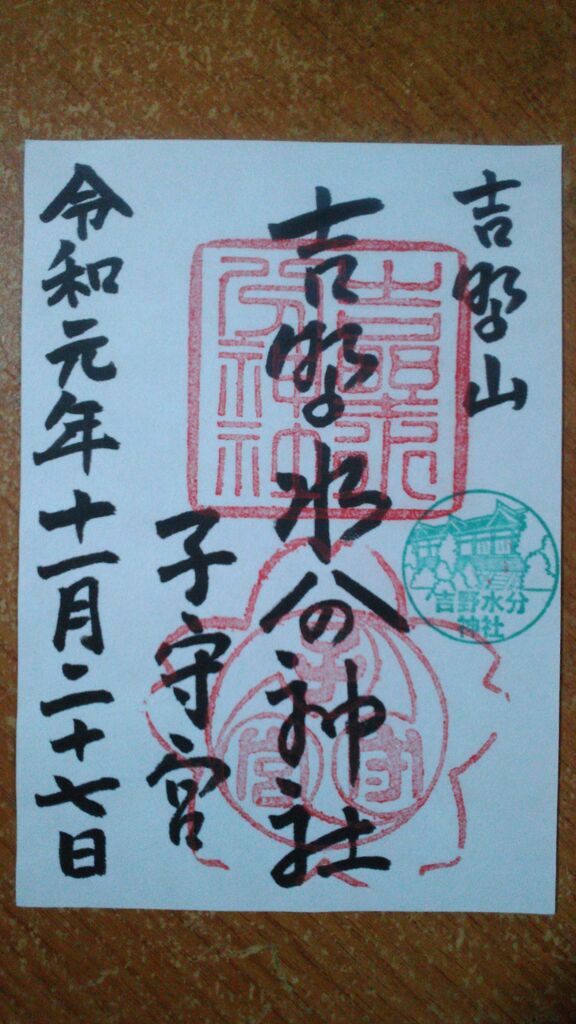 吉野山
吉野水分神社
子守宮
令和元年十一月二十七日
吉野水分神社
吉野水分神社
子守宮